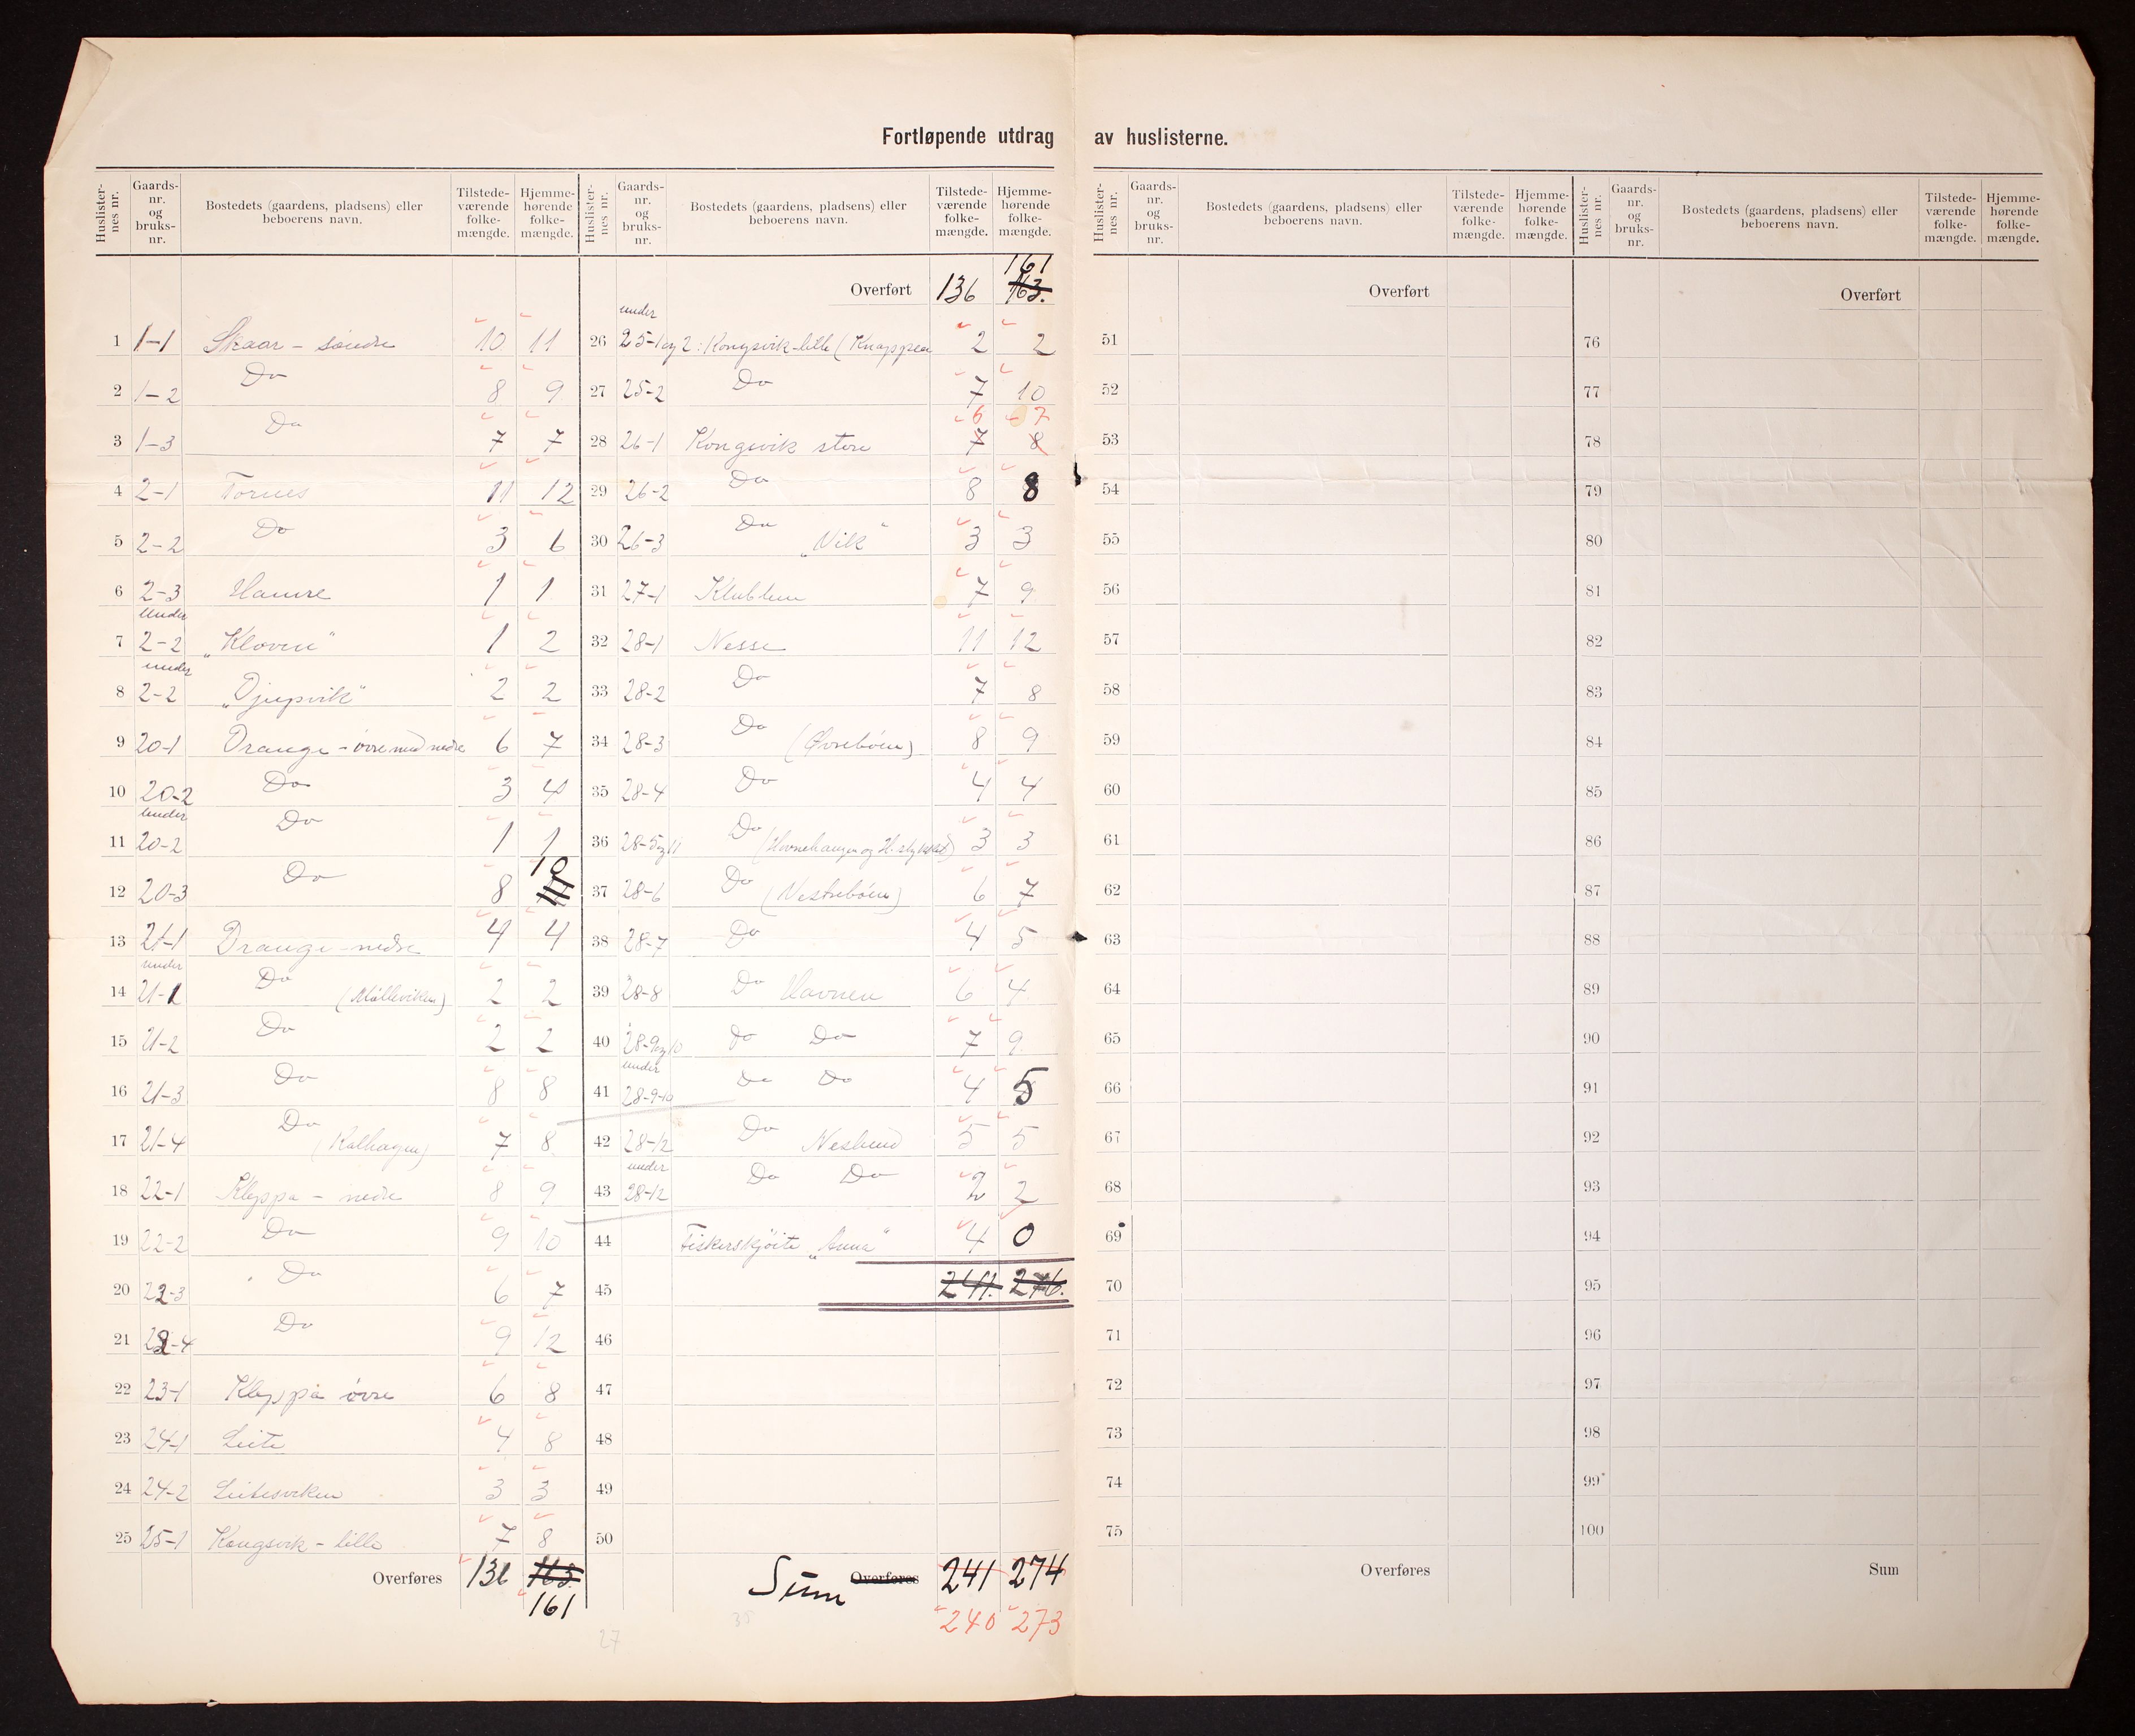 Fortløpende utdrag av huslisterne.
Huslister-nes nr. Gaards-nr. og bruks-nr. Bostedets (gaardens, pladsens) eller beboerens navn. Tilstede-værende folke-mængde. Hjemme-hørende folke-mængde.
1 1-1 Skaar - søndre 10 11
2 1-2 Do 8 9
3 1-3 Do 7 7
4 2-1 Tornes 11 12
5 2-2 Do 3 6
6 2-3 Hamre 1 1
7 under 2-2 „Kloven“ 1 2
8 under 2-2 „Djupvik“ 2 2
9 20-1 Drange - øvre med nedre 6 7
10 20-2 Do 3 4
11 under 20-2 Do 1 1
12 20-3 Do 8 10
13 21-1 Drange - nedre 4 4
14 under 21-1 Do (Mølleviken) 2 2
15 21-2 Do 2 2
16 21-3 Do 8 8
17 21-4 Do (Kalhagen) 7 8
18 22-1 Kleppa - nedre 8 9
19 22-2 Do 9 10
20 22-3 Do 6 7
21 22-4 Do 9 12
22 23-1 Kleppa øvre 6 8
23 24-1 Leite 4 8
24 24-2 Leitesviken 3 3
25 25-1 Kongsvik - lille 7 8
Overføres 136 163
161
Huslister-nes nr. Gaards-nr. og bruks-nr. Bostedets (gaardens, pladsens) eller beboerens navn. Tilstede-værende folke-mængde. Hjemme-hørende folke-mængde.
161
Overført 136 163.
26 under 25-1 og 2: Kongsvik-lille (Knappen 2 2
27 25-2 Do 7 10
6 7
28 26-1 Kongsvik store 7 8
29 26-2 Do 8 8
30 26-3 Do „Vik“ 3 3
31 27-1 Klubben 7 9
32 28-1 Nesse 11 12
33 28-2 Do 7 8
34 28-3 Do (Øvrebøen) 8 9
35 28-4 Do 4 4
36 28-5 og 11 Do 3 3
37 28-6 Do (Vestrebøen) 6 7
38 28-7 Do 4 5
39 28-8 Do Havnen 6 4
40 28-9 og 10 Do Do 7 9
41 under 28-9-10 Do Do 4 5
42 28-12 Do Neslund 5 5
43 under 28-12 Do Do 2 2
44 Fiskerskjøite „Anna“ 4 0
45 241. 276.
46
47
48
49
50
Sum Overføres 241 274
240 273
27 35
Huslister-nes nr. Gaards-nr. og bruks-nr. Bostedets (gaardens, pladsens) eller beboerens navn. Tilstede-værende folke-mængde. Hjemme-hørende folke-mængde.
Overført
51
52
53
54
55
56
57
58
59
60
61
62
63
64
65
66
67
68
69
70
71
72
73
74
75
Overføres
Huslister-nes nr. Gaards-nr. og bruks-nr. Bostedets (gaardens, pladsens) eller beboerens navn. Tilstede-værende folke-mængde. Hjemme-hørende folke-mængde.
Overført
76
77
78
79
80
81
82
83
84
85
86
87
88
89
90
91
92
93
94
95
96
97
98
99
100
Sum